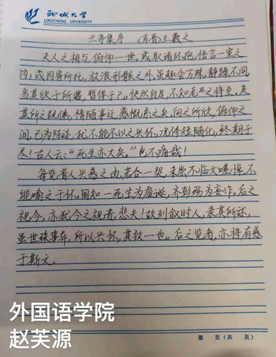 聊城大学
LIAOCHENG UNIVERSITY
兰亭集序 (东晋)王羲之
夫人之相与,俯仰一世,或取诸怀抱,悟言一室之
内;或因寄所托,放浪形骸之外。虽趣舍万殊,静躁不同,
当其欣于所遇,暂得于己,快然自足,不知老之将至。及
其所之既倦,情随事迁,感慨系之矣。向之所欣,俯仰之
间,已为陈迹,犹不能不以之兴怀。况修短随化,终期于
尽!古人云:“死生亦大矣。”岂不痛哉!
每览昔人兴感之由,若合一契,未尝不临文嗟悼,不
能喻之于怀。固知一死生为虚诞,齐彭殇为妄作。后之
视今,亦犹今之视昔。悲夫!故列叙时人,录其所述,
虽世殊事异,所以兴怀,其致一也。后之览者,亦将有感
于斯文。
外国语学院
赵芙源
第 页(共 页)